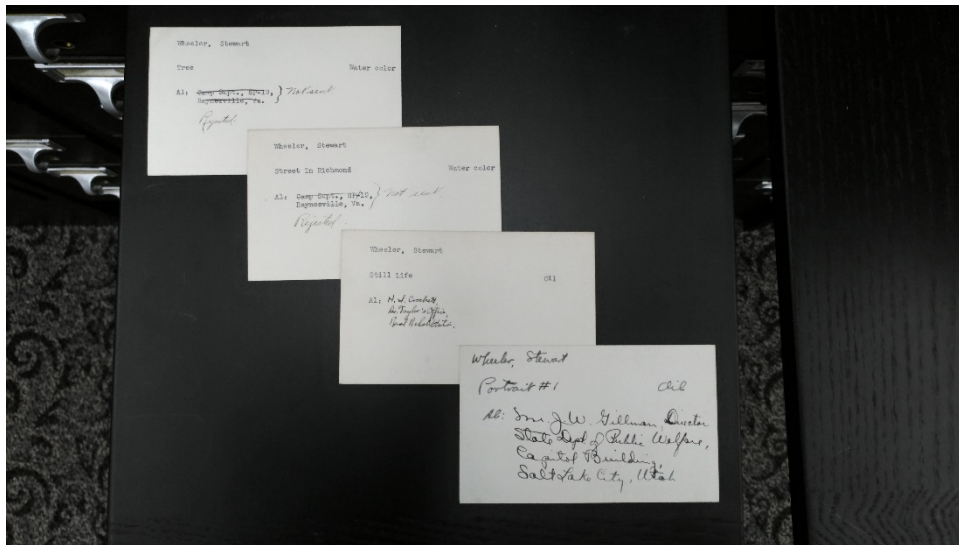 Wheeler, Stewart
Tree Water color
Al: Camp Supt., SP-10, } Not sent
Haynesville, Va.
Rejected
Wheeler, Stewart
Street in Richmond Water color
Al: Camp Supt., SP-10, } Not sent
Haynesville, Va.
Rejected
Wheeler, Stewart
Still Life Oil
Al: N. I.
Dr. Taylor's Office,
Rural
Wheeler, Stewart
Portrait #1 Oil
Al: J. W. Gillman, Director
State Dept of Public Welfare,
Capitol Building,
Salt Lake City, Utah